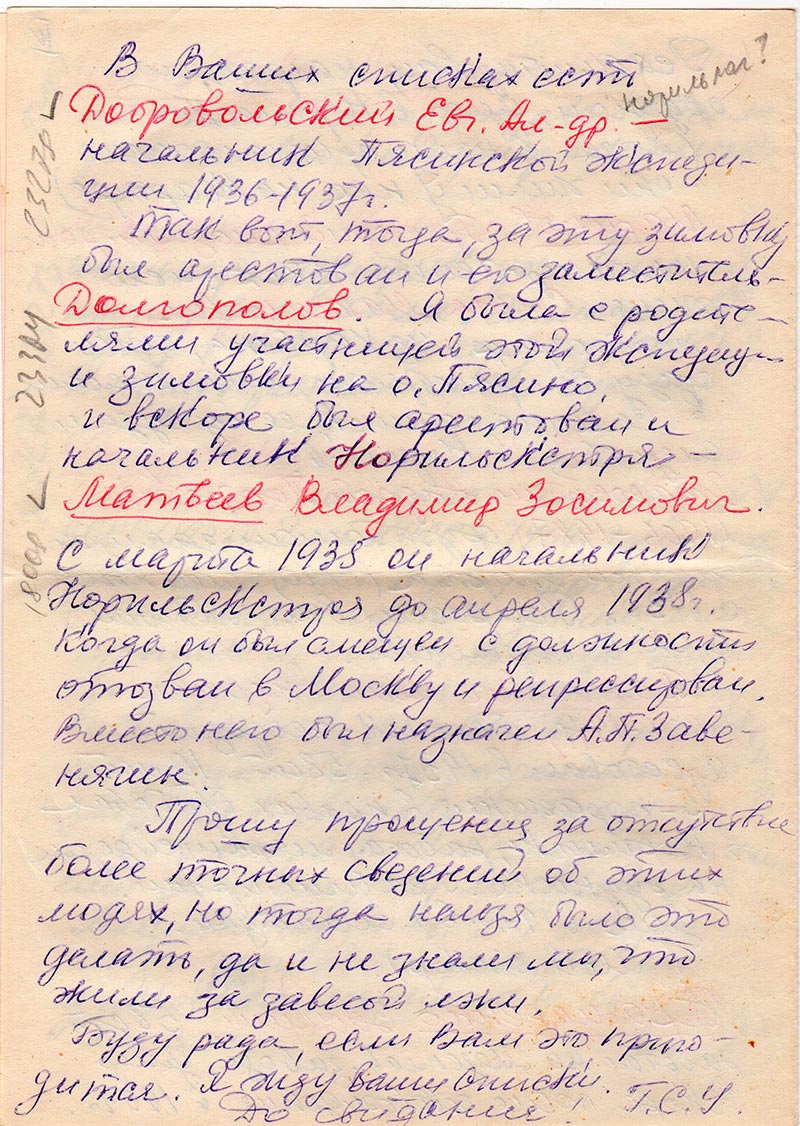 В Ваших списках есть
норильлаг?
Добровольский Евг. Ал-др. —
начальник Пясинской экспеди-
ции 1936-1937г.
Так вот, тогда, за эту зимовку
был арестован и его заместитель-
Долгополов. Я была с родите-
лями участницей этой экспедиц-
и зимовки на о. Пясино,
и вскоре был арестован и
начальник Норильскстроя —
Матвеев Владимир Зосимович.
С марта 1935 он начальник
Норильскстроя до апреля 1938г.
Когда он был смещен с должности
отозван в Москву и репрессирован.
Вместо него был назначен А.П. Заве-
нягин.
Прошу прощения за отсутствие
более точных сведений об этих
людях, но тогда нельзя было это
делать, да и не знали мы, что
жили за завесой лжи.
Буду рада, если Вам это приго-
дится. Я жду ваши списки.
До свидания! Т.С.У.